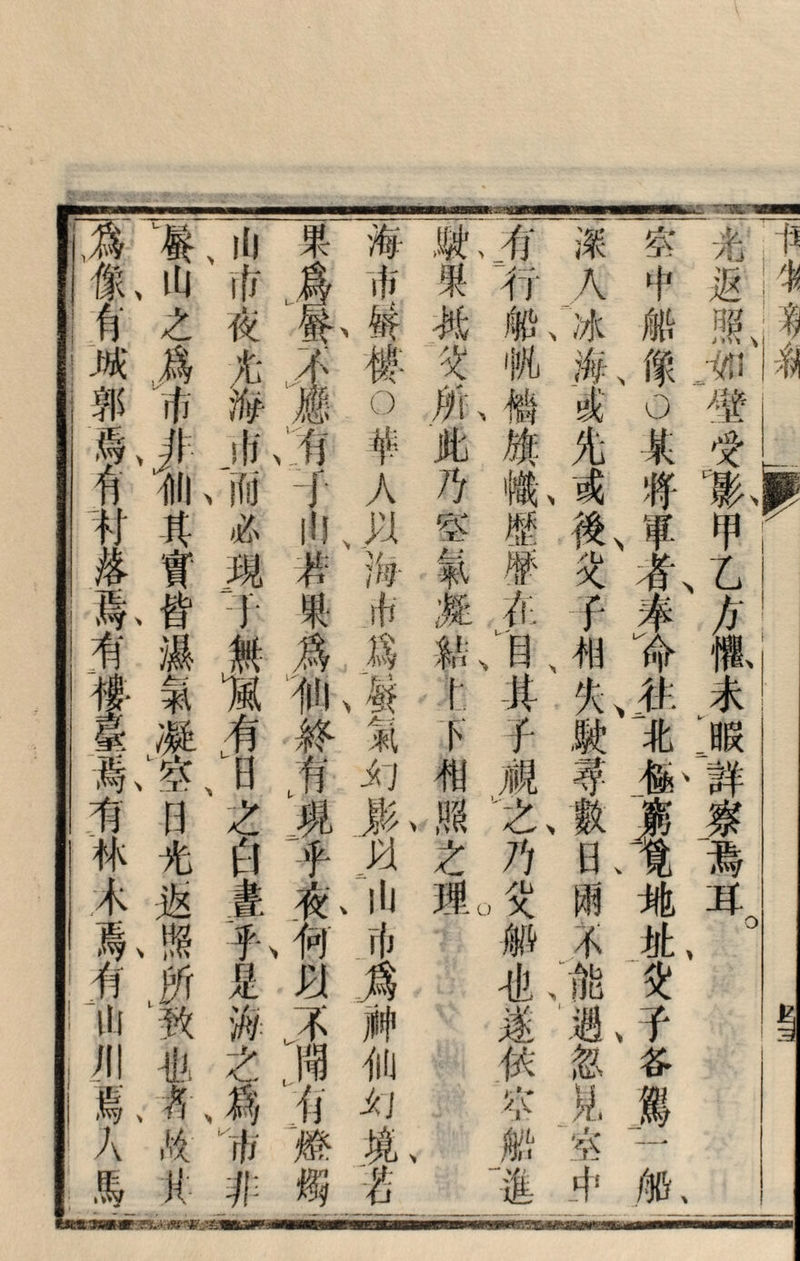 博物新編
光返照、如壁受影、甲乙方懼、未暇詳察焉耳。
空中船像○某將軍者、奉命往北極、窮覓地址、父子各駕一船、
深入冰海、或先或後、父子相失、駛尋數日、兩不能遇、忽見空中
有行船、帆檣旗幟、歷歷在目、其子視之、乃父船也、遂依空船進
駛、果抵父所、此乃空氣凝結、上下相照之理。
海市蜃樓○華人以海市爲蜃氣幻影、以山市爲神仙幻境、若
果爲蜃、不應有于山、若果爲仙、終有現乎夜、何以不聞有燈燭
山市夜光海市、而必現于無風有日之白晝乎、是海之爲市非
蜃、山之爲市非仙、其實皆濕氣凝空、日光返照所致也者、故其
爲像、有城郭焉、有村落焉、有樓臺焉、有林木焉、有山川焉、人馬